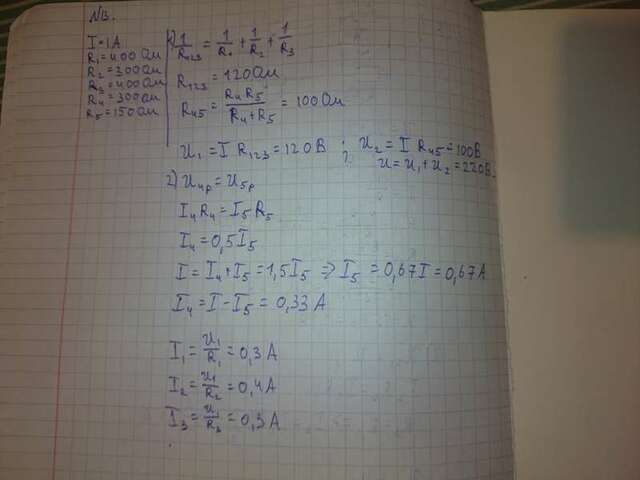 N3.
I=1A
R₁=400 Ом
R₂=300 Ом
R₃=400 Ом
R₄=300 Ом
R₅=150 Ом
1) 1/R₁₂₃ = 1/R₁ + 1/R₂ + 1/R₃
R₁₂₃ = 120 Ом
R₄₅ = R₄R₅/(R₄+R₅) = 100 Ом
U₁ = I R₁₂₃ = 120 В ; U₂ = I R₄₅ = 100 В
U = U₁ + U₂ = 220 В.
2) U₄р = U₅р
I₄R₄ = I₅R₅
I₄ = 0,5 I₅
I = I₄ + I₅ = 1,5 I₅ ⇒ I₅ = 0,67 I = 0,67 A
I₄ = I − I₅ = 0,33 A
I₁ = U₁/R₁ = 0,3 A
I₂ = U₁/R₂ = 0,4 A
I₃ = U₁/R₃ = 0,3 A